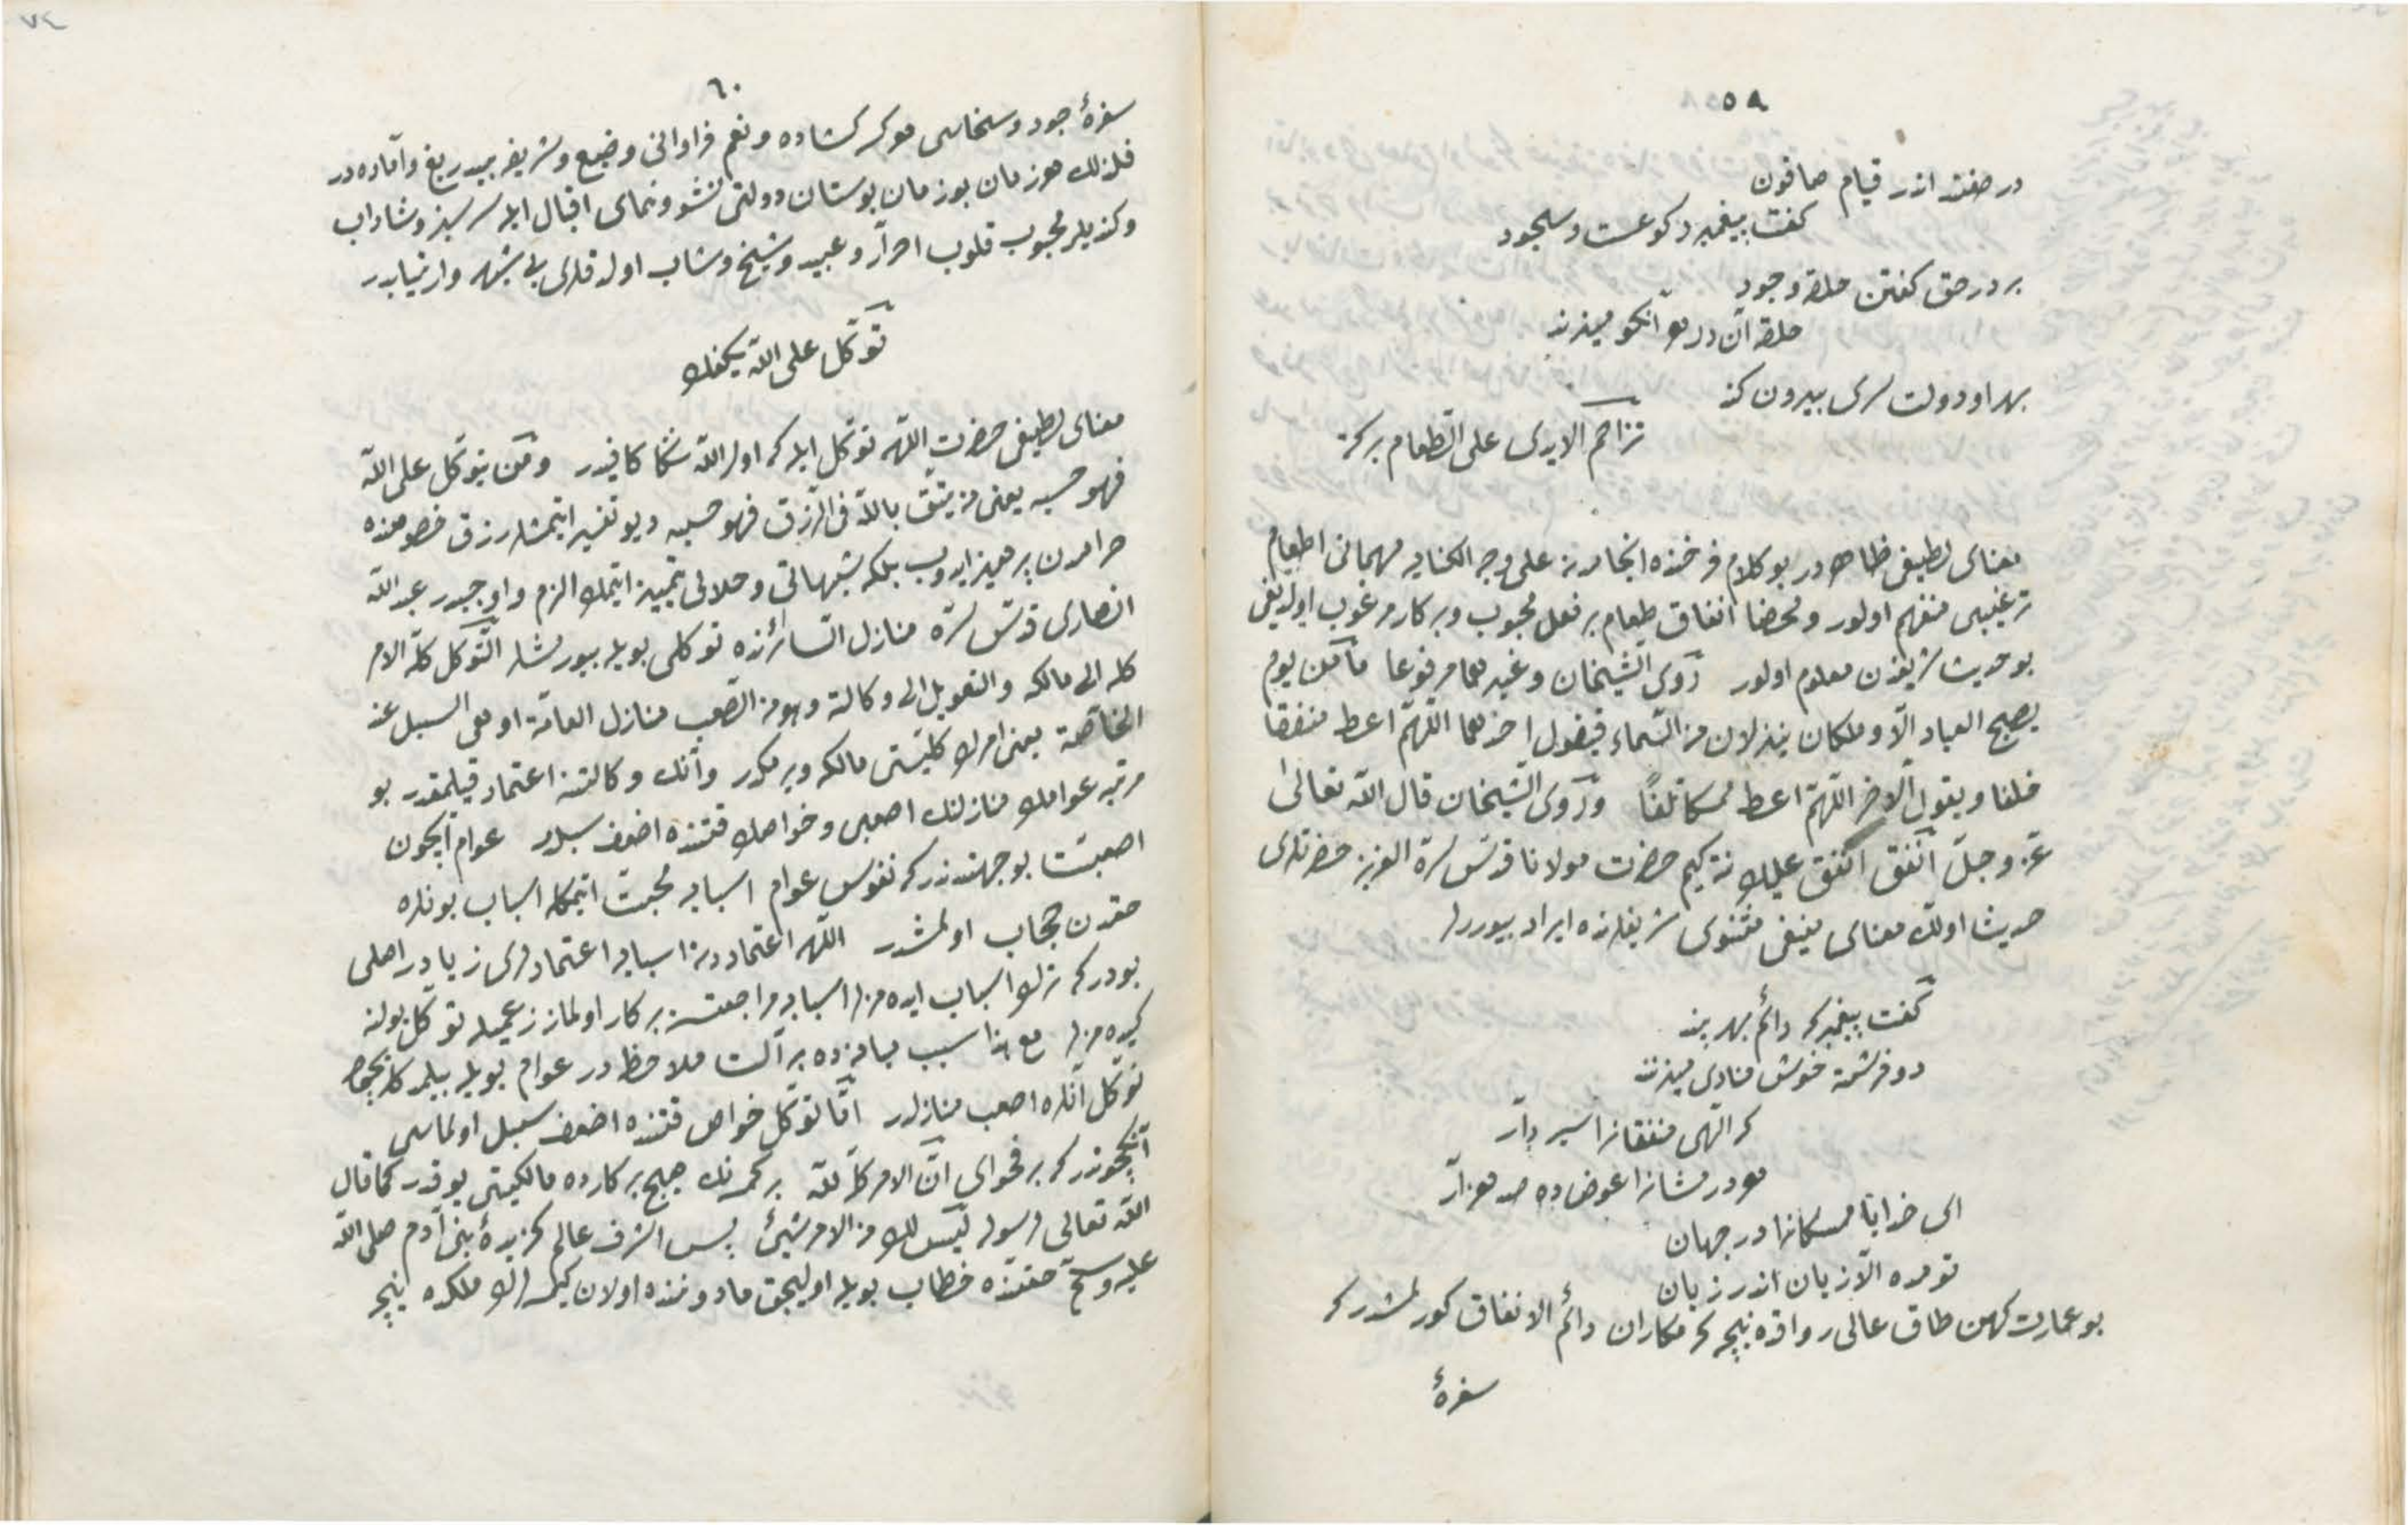 ٥٩
در صفند اندر قیام صافون
كفت پیغمبر ركوعست و سجود
بر در حق كفتن حلقه وجود
حلقه آن در هر آنكو میزند
بهر او دولت سری بیرون كند
تزاحم الایدی علی الطعام بركة
معنای لطیفی ظاهر در بو كلام فرخنده انجامدن علی وجه الكنایه مهمانی اطعام
ترغیبی منفهم اولور و محضا انفاق طعام بر فعل محبوب و بر كار مرغوب اولدیغی
بو حدیث شریفدن معلوم اولور رَوی الشیخان و غیرهما مرفوعا ما من یوم
یصبح العباد الّا و ملكان ینزلان من السّماء فیقول احدهما اللّهمّ اعط منفقا
خلفا و یقول الآخر اللّهمّ اعط ممسكا تلفًا و رَوی الشیخان قال اللّه تعالی
عزّ و جلّ اَنفق اُنفق علیك نته كیم حضرت مولانا قدّس سرّه العزیز حضرتلری
حدیث اولك معنای منیفی مثنوی شریفلرنده ایراد بیوررلر
كفت پیغمبر كه دائم بهر پند
دو فرشته خوش منادی میزنند
كه الٓهی منفقانرا سیر دار
هر درمشانرا عوض ده صد هزار
ای خدایا ممسكانرا در جهان
تو مده الّا زیان اندر زیان
بو عمارت كهن طاق عالی رواقده نیچه كرمكاران دائم الانفاق كورلمشدر كه
سفرهٔ
٦٠
سفرهٔ جود و سخاسی هر كسه كشاده و نعم فراوانی وضیع و شریفه بیدریغ و آماده در
فلذلك هر زمان بو زمان بوستان دولتی نشو و نمای اقبال ایله سر سبز و شاداب
و كندیلر محبوب قلوب احرار و عبید و شیخ و شاب اولدقلری بی شبهه و ارتیابدر
توكّل علی اللّه یكفك
معنای لطیفی حضرت اللّهه توكّل ایله كه اول اللّه سكا كافیدر و من یتوكل علی اللّه
فهو حسبه یعنی من یتق باللّه فی الرّزق فهو حسبه دیو تفسیر ایتمشلر رزق خصوصنده
حرامدن پرهیز ایدوب بلكه شبهاتی و حلالی تمییز ایتمك الزم و اوجبدر عبد اللّه
انصاری قدّس سرّه منازل السائرنده توكلی بویله بیورمشلر التّوكل كلة الامر
كله الی مالكه و التعویل الی وكالته و هو من اصعب منازل العامّة و اوهی السبل عند
الخاصّة یعنی امرك كلیّتنی مالكه ویرمكدر و آنك وكالتنه اعتماد قیلمقدر بو
مرتبه عوامك منازلنك اصعبی و خواصك قتنده اضعف سبلدر عوام ایچون
اصعبیّت بو جهتدندر كه نفوس عوام اسبابه محبّت ایتمكله اسباب بونلره
حقدن حجاب اولمشدر اللّهه اعتماددن اسبابه اعتمادلری زیاده در اصلی
بودر كه ترك اسباب ایده مزلر اسبابه مراجعتسز بر كار اولماز زعمیله توكّل یولنه
كیده مزلر مع هذا سبب میانه ده بر آلت ملاحظه در عوام بویله بیلمدكلریچون
توكل آنلره اصعب منازلدر امّا توكّل خواص قتنده اضعف سبل اولماسی
آنكچوندر كه بر فحوای انّ الامر كلّه للّه بر كمسنه نك هیچ بر كارده مالكیتی یوقدر كما قال
اللّه تعالی لرسوله لیس لك من الامر شیئ پس اشرف عالم كزیدهٔ بنی آدم صلی اللّه
علیه و سلّم حقنده خطاب بویله اولیجق مادوننده اولان كیمسه لرك ملكده نیچه